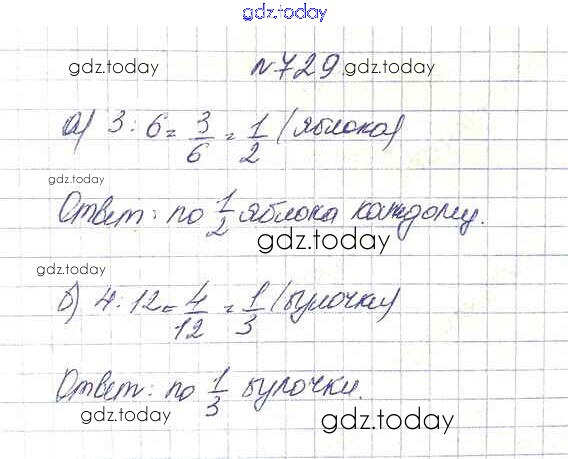 gdz.today
gdz.today №729 gdz.today
а) 3 : 6 = 3/6 = 1/2 (яблока)
gdz.today
Ответ: по 1/2 яблока каждому.
gdz.today
gdz.today
б) 4 : 12 = 4/12 = 1/3 (булочки)
Ответ: по 1/3 булочки.
gdz.today gdz.today